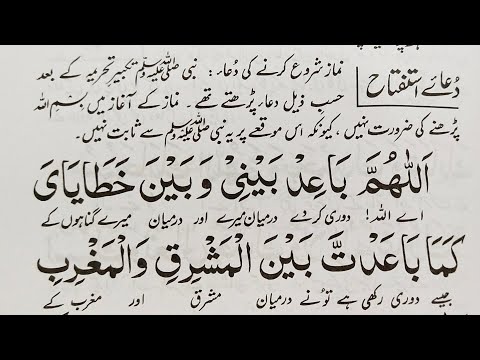 دُعائے استفتاح
نماز شروع کرنے کی دُعاء: نبی ﷺ تکبیرِ تحریمہ کے بعد
حسب ذیل دعاء پڑھتے تھے۔ نماز کے آغاز میں بسم اللہ
پڑھنے کی ضرورت نہیں، کیونکہ اس موقعے پر یہ نبی ﷺ سے ثابت نہیں۔
اَللّٰهُمَّ بَاعِدْ بَيْنِيْ وَبَيْنَ خَطَايَايَ
اے اللہ! دوری کر دے درمیان میرے اور درمیان میرے گناہوں کے
كَمَا بَاعَدْتَّ بَيْنَ الْمَشْرِقِ وَالْمَغْرِبِ
جیسے دوری رکھی ہے تو نے درمیان مشرق اور مغرب کے